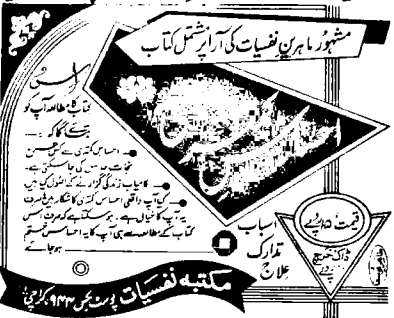 مشہور ماہرین نفسیات کی آرا پر مشتمل کتاب
اس
کتاب کا مطالعہ آپ کو
بتائے گا کہ :—
احساس کمتری سے کس طرح
نجات حاصل کی جا سکتی ہے۔
کامیاب زندگی گزارنے کے اصول کیا ہیں
کیا آپ واقعی احساس کمتری کا شکار ہیں یا صرف
یہ آپ کا خیال ہے۔ ہو سکتا ہے کہ صرف اس
کتاب کے مطالعہ سے ہی آپ کا یہ احساس ختم
ہو جائے
احساس کمتری
اسباب
تدارک
علاج
قیمت: ۱۵ روپے
ڈاک خرچ
روپے
مکتبہ نفسیات پوسٹ بکس ۹۴۳ کراچی ۱